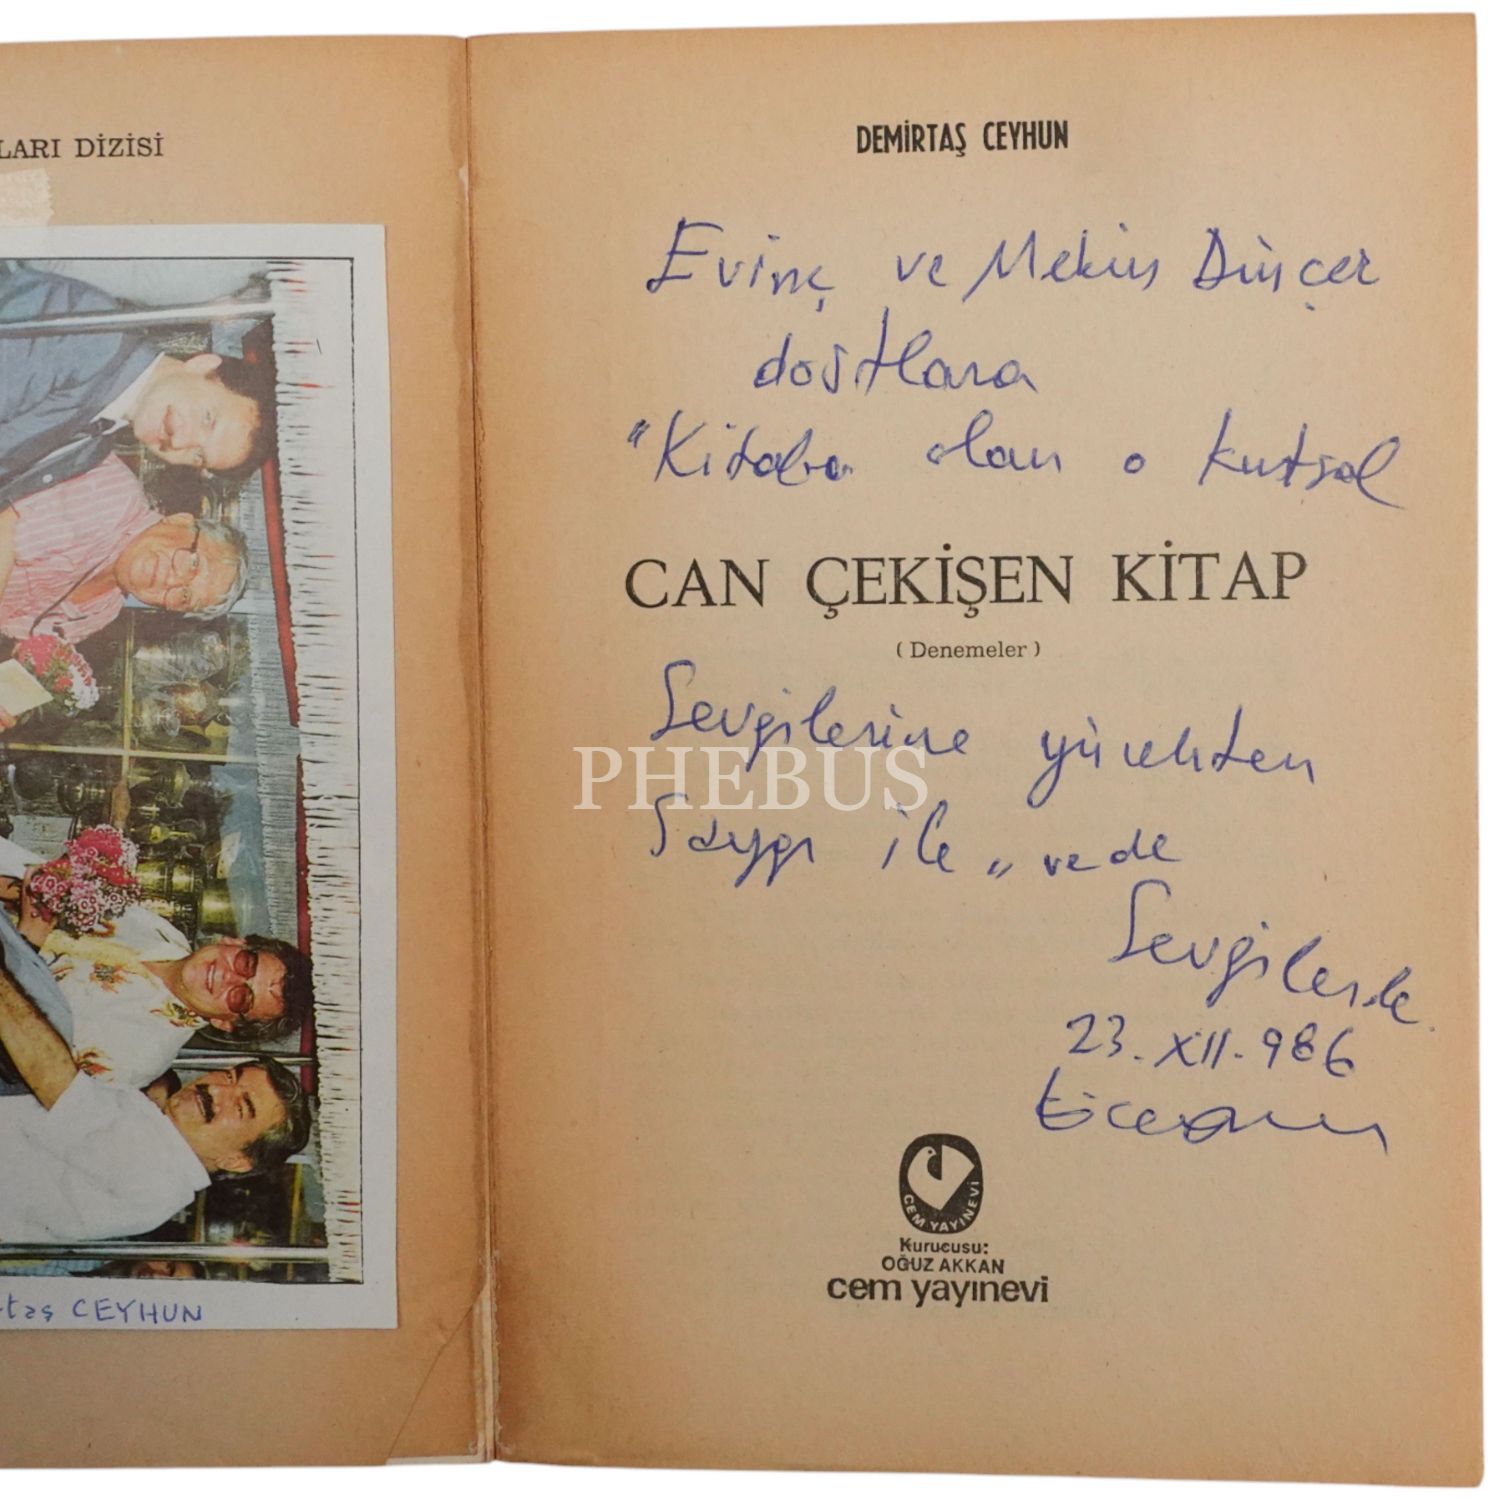 LARI DİZİSİ
taş CEYHUN
DEMİRTAŞ CEYHUN
Evinç ve Mekin Dinçer
dostlara
"Kitaba olan o kutsal
CAN ÇEKİŞEN KİTAP
( Denemeler )
Sevgilerine yürekten
PHEBUS
Saygı ile,, ve de
Sevgilerle.
23.XII.986
CEM YAYINEVİ
Kurucusu:
OĞUZ AKKAN
cem yayınevi